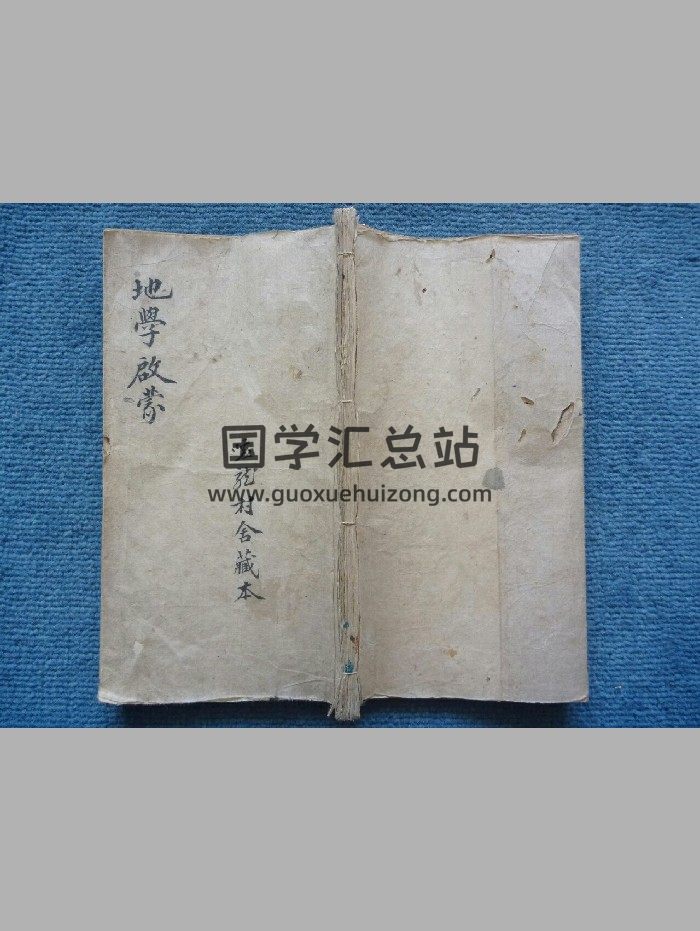 地學啟蒙
村舍藏本
国学汇总站
www.guoxuehuizong.com